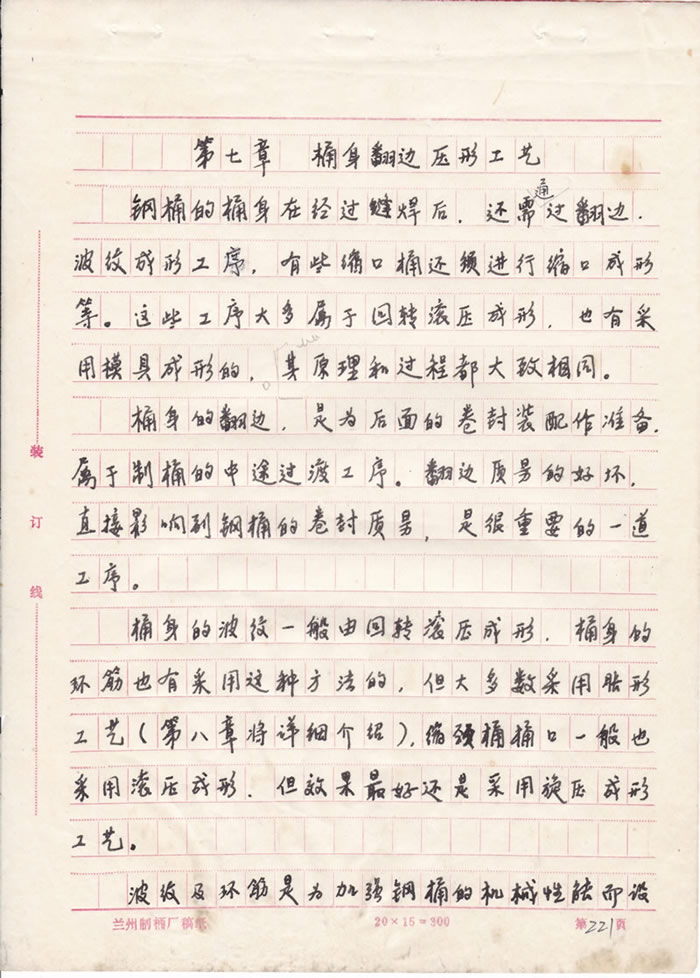 第七章　桶身翻边压形工艺
钢桶的桶身在经过缝焊后，还需通过翻边、
波纹成形工序，有些缩口桶还须进行缩口成形
等。这些工序大多属于回转滚压成形，也有采
用模具成形的，其原理和过程都大致相同。
桶身的翻边，是为后面的卷封装配作准备，
属于制桶的中途过渡工序。翻边质量的好坏，
直接影响到钢桶的卷封质量，是很重要的一道
工序。
桶身的波纹一般由回转滚压成形，桶身的
环筋也有采用这种方法的，但大多数采用胀形
工艺（第八章将详细介绍），缩颈桶桶口一般也
采用滚压成形，但效果最好还是采用旋压成形
工艺。
波纹及环筋是为加强钢桶的机械性能而设
装
订
线
兰州制桶厂稿纸
20×15=300
第221页